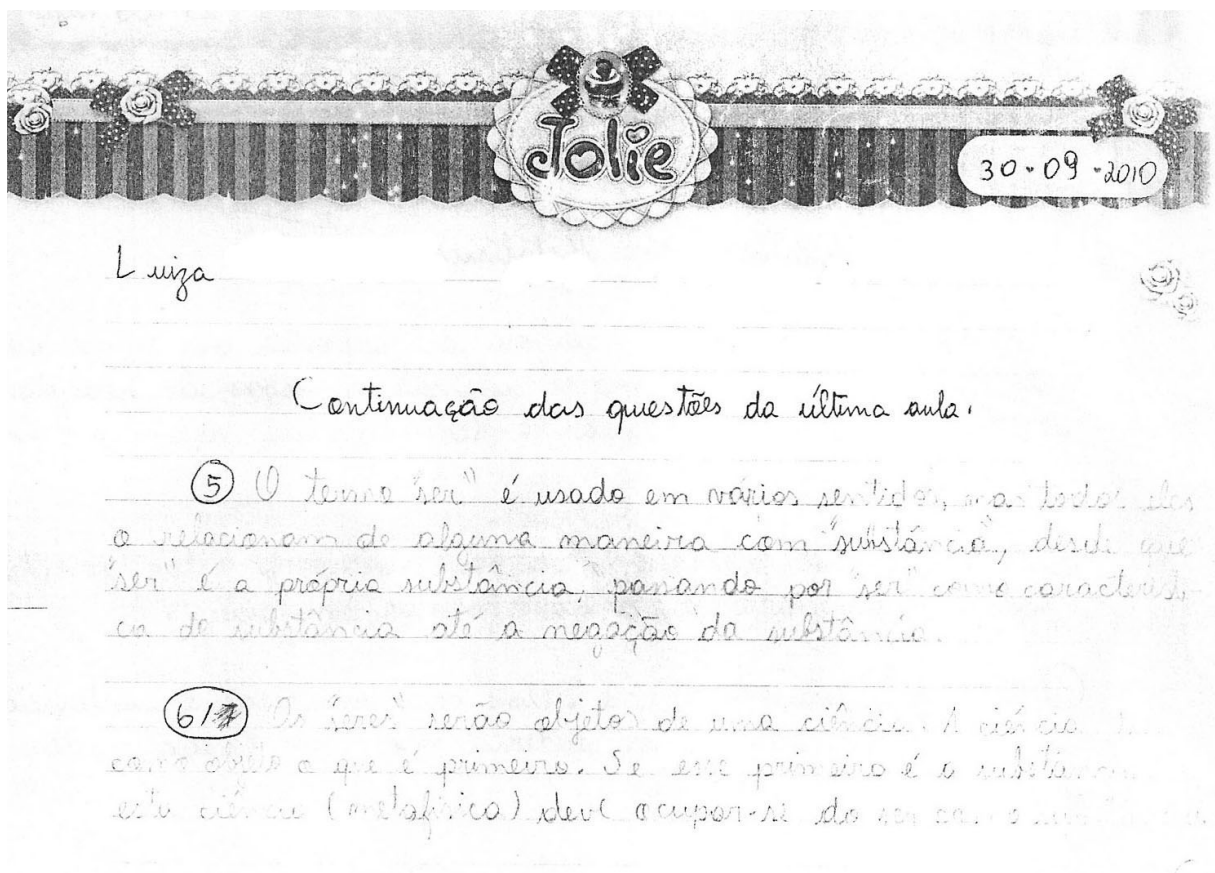 Jolie
30-09-2010
Luiza
Continuação das questões da última aula.
5 O termo "ser" é usado em vários sentidos, mas todos eles
o relacionam de alguma maneira com "substância", desde que
"ser" é a própria substância, passando por "ser" como característi-
ca de substância até a negação da substância.
6/ Os "seres" serão objetos de uma ciência. A ciência
como objeto o que é primeiro. Se esse primeiro é a substância
esta ciência (metafísica) deve ocupar-se do ser como